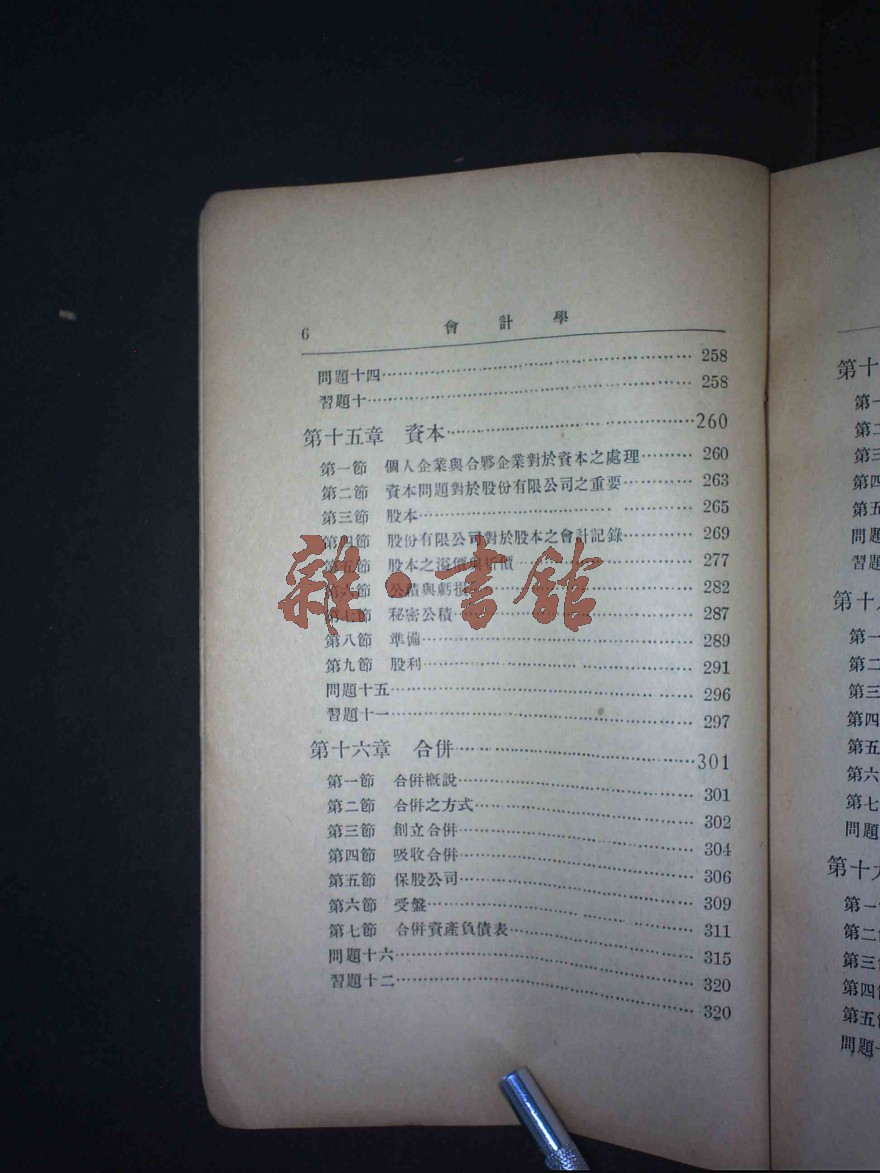 6 會計學
問題十四……258
習題十……258
第十五章 資本……260
第一節 個人企業與合夥企業對於資本之處理……260
第二節 資本問題對於股份有限公司之重要……263
第三節 股本……265
第四節 股份有限公司對於股本之會計記錄……269
第五節 股本之溢價與折價……277
第六節 公積與虧損……282
第七節 秘密公積……287
第八節 準備……289
第九節 股利……291
問題十五……296
習題十一……297
第十六章 合併……301
第一節 合併概說……301
第二節 合併之方式……302
第三節 創立合併……304
第四節 吸收合併……306
第五節 保股公司……309
第六節 受盤……311
第七節 合併資產負債表……315
問題十六……320
習題十二……320
雜·書館
第十
第一
第二
第三
第四
第五
問題
習題
第十
第一
第二
第三
第四
第五
第六
第七
問題
第十
第一
第二
第三
第四
第五
問題